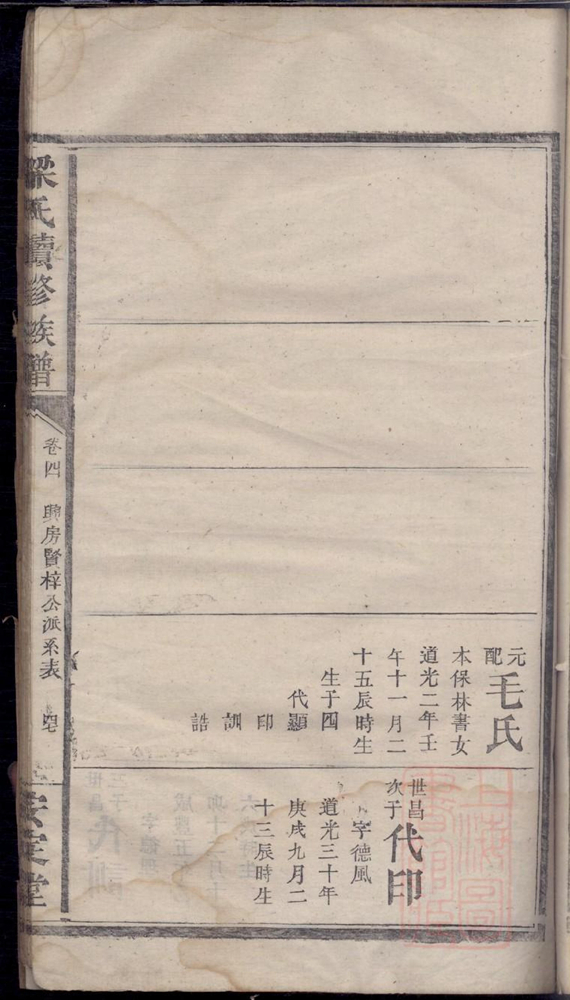 元配毛氏
本保林書女
道光二年壬
午十一月二
十五辰時生
生子四
代顯
印
訓
誥
世昌次子代印
字德風
道光三十年
庚戌九月二
十三辰時生
梁氏續修族譜
卷四
興房賢梓公派系表
安定堂